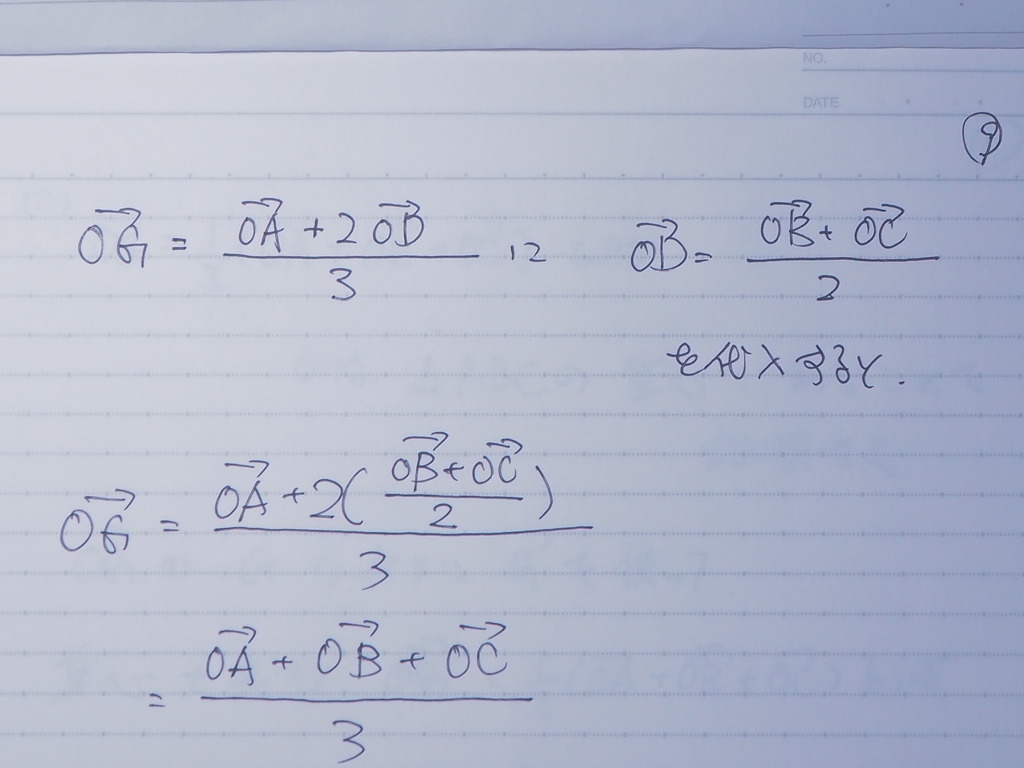 NO.
DATE
⑨
\overrightarrow{OG} = \frac{\overrightarrow{OA} + 2\overrightarrow{OD}}{3} に \overrightarrow{OD} = \frac{\overrightarrow{OB} + \overrightarrow{OC}}{2}
を代入すると.
\overrightarrow{OG} = \frac{\overrightarrow{OA} + 2(\frac{\overrightarrow{OB} + \overrightarrow{OC}}{2})}{3}
= \frac{\overrightarrow{OA} + \overrightarrow{OB} + \overrightarrow{OC}}{3}